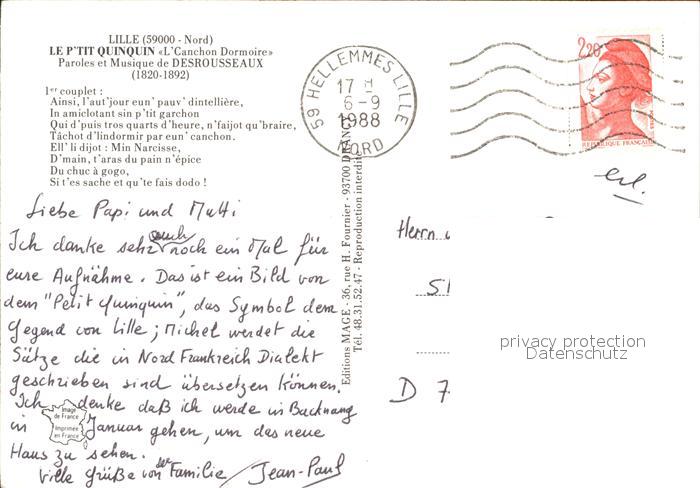 LILLE (59000 - Nord)
LE P'TIT QUINQUIN «L'Canchon Dormoire»
Paroles et Musique de DESROUSSEAUX
(1820-1892)
1er couplet :
Ainsi, l'aut'jour eun' pauv' dintellière,
In amiclotant sin p'tit garchon
Qui d'puis tros quarts d'heure, n'faijot qu'braire,
Tâchot d'lindormir par eun' canchon.
Ell' li dijot : Min Narcisse,
D'main, t'aras du pain n'épice
Du chuc à gogo,
Si t'es sache et qu'te fais dodo !
59 HELLEMMES LILLE
17 H
6-9
1988
NORD
2,20
REPUBLIQUE FRANÇAISE
Liebe Papi und Mutti
Ich danke sehr euch noch ein Mal für
eure Aufnähme. Das ist ein Bild von
dem "Petit Quinquin", das Symbol dem
Gegend von Lille ; Michel werdet die
Sätze die in Nord Frankreich Dialekt
geschrieben sind übersetzen können.
Ich denke daß ich werde in Backnang
in Januar gehen, um das neue
Haus zu sehen.
Ville Grüße von der Familie / Jean-Paul
Image
de France
Imprimée
en France
Editions MAGE - 36, rue H. Fournier - 93700 DRANCY
Tél. 48.31.52.47 - Reproduction interdite
Herrn
D 7
privacy protection
Datenschutz